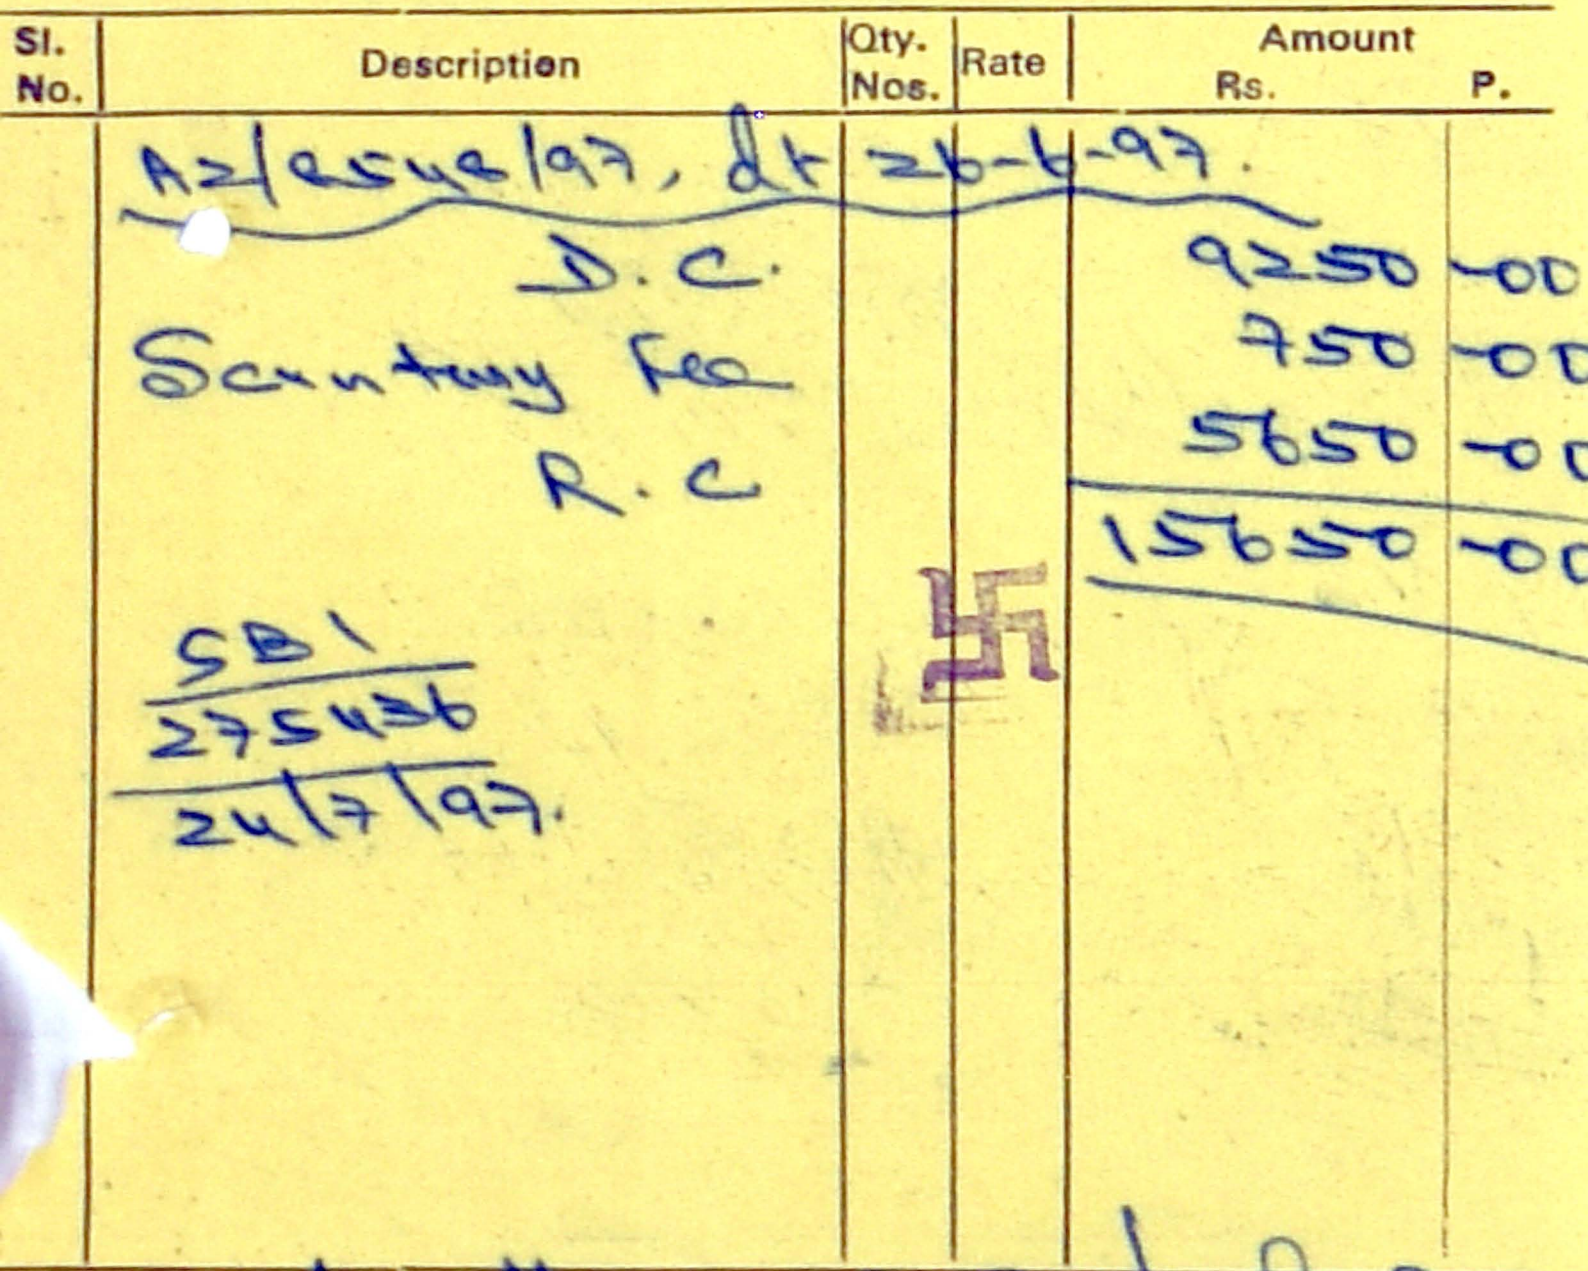 Sl. No. Description Qty. Nos. Rate Amount Rs. P.
dt 26-6-97.
D.C. 9250 -00
Scruntany Fee 750 -00
R.C 5650 -00
15650 -00
SBI
275436
24/7/97.